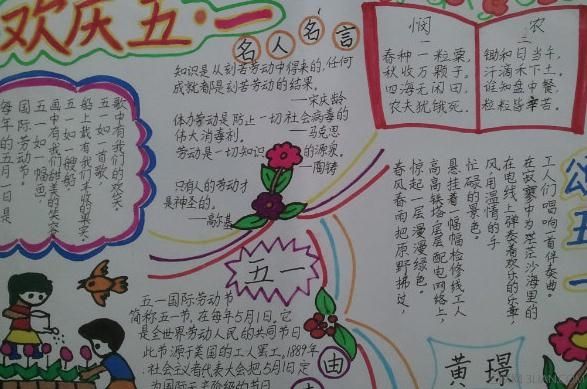 欢庆五·一
名人名言
知识是从刻苦劳动中得来的,任何
成就都是刻苦劳动的结果。
——宋庆龄
体力劳动是防止一切社会病毒的
伟大消毒剂。
——马克思
劳动是一切知识的源泉。
——陶铸
只有人的劳动才
是神圣的。
——高尔基
悯农
春种一粒粟,
秋收万颗子。
四海无闲田,
农夫犹饿死。
锄和日当午,
汗滴禾下土。
谁知盘中餐,
粒粒皆辛苦。
歌中有我们的欢笑。
五一如一首歌,
船上载有我们丰收的果实。
五一如一艘船,
画中有我们甜美的笑容。
五一如一幅色,
国际劳动节。
每年的五月1日是
五一
五一国际劳动节
简称五一节,在每年5月1日。它
是全世界劳动人民的共同节日
此节源于美国的工人罢工,1889年
社会主义者代表大会把5月1日定
为国际无产阶级的节日
颂五一
工人们唱响一首伴奏曲。
在寂寥中为茫茫沙海里的
在电线上弹奏着欢乐的乐章,
风用温情的手
忙碌的景色。
悬挂着一幅幅检修线工人
高高铁塔层层配电网络上,
惊起一层漫漫绿色。
春风春雨把原野拂过,
由
黄璟